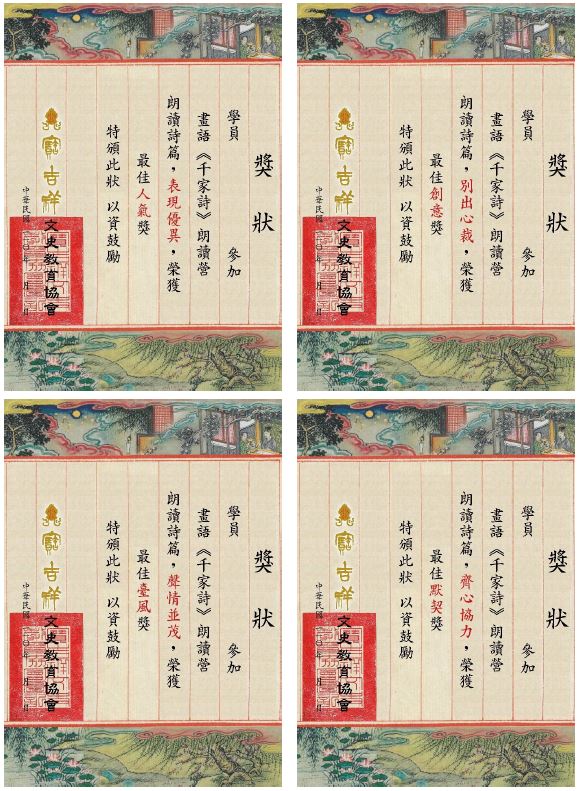 獎狀
學員 參加
畫語《千家詩》朗讀營
朗讀詩篇，表現優異，榮獲
最佳人氣獎
特頒此狀 以資鼓勵
寶吉祥文史教育協會
中華民國 年 月 日
獎狀
學員 參加
畫語《千家詩》朗讀營
朗讀詩篇，別出心裁，榮獲
最佳創意獎
特頒此狀 以資鼓勵
寶吉祥文史教育協會
中華民國 年 月 日
獎狀
學員 參加
畫語《千家詩》朗讀營
朗讀詩篇，聲情並茂，榮獲
最佳臺風獎
特頒此狀 以資鼓勵
寶吉祥文史教育協會
中華民國 年 月 日
獎狀
學員 參加
畫語《千家詩》朗讀營
朗讀詩篇，齊心協力，榮獲
最佳默契獎
特頒此狀 以資鼓勵
寶吉祥文史教育協會
中華民國 年 月 日